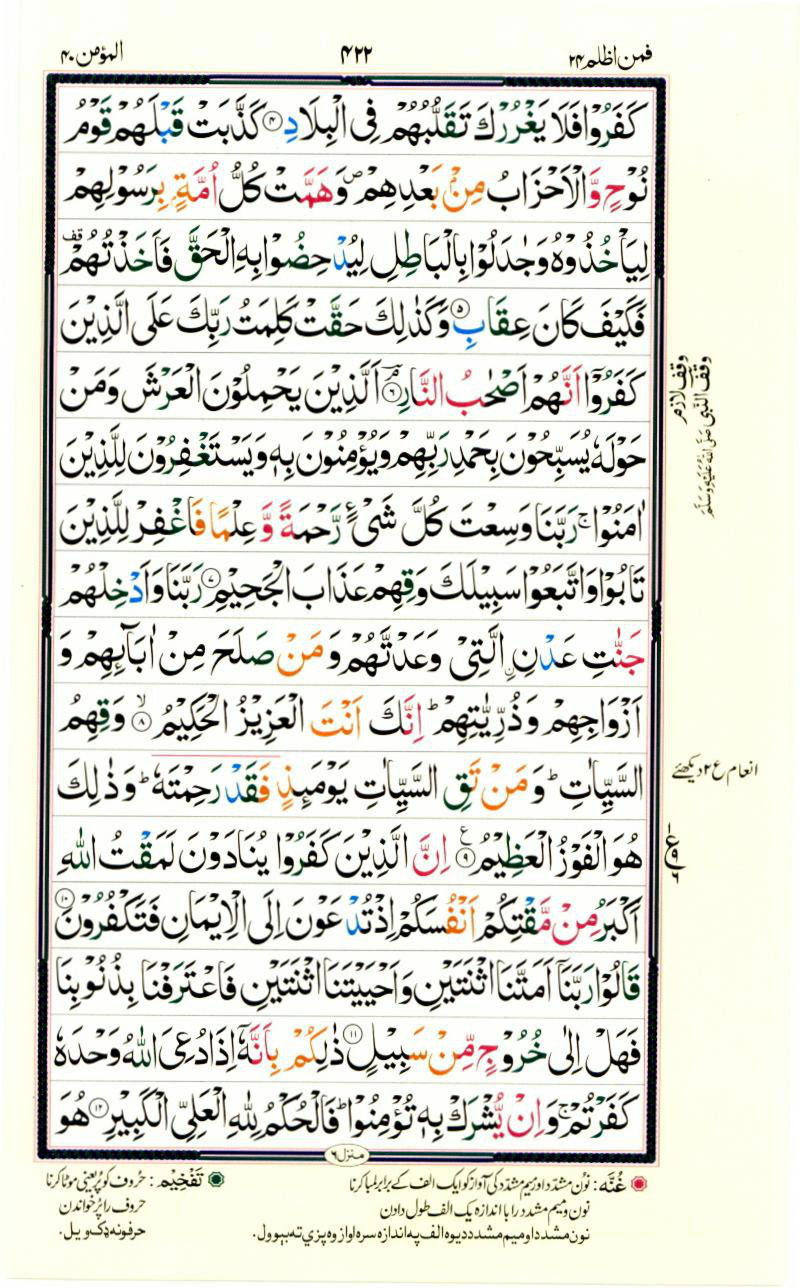 فمن اظلم ۲۴
۴۲۲
المؤمن ۴۰
كَفَرُوْا فَلَا يَغْرُرْكَ تَقَلُّبُهُمْ فِى الْبِلَادِ ۴ كَذَّبَتْ قَبْلَهُمْ قَوْمُ
نُوْحٍ وَّالْاَحْزَابُ مِنْۢ بَعْدِهِمْ ص وَهَمَّتْ كُلُّ اُمَّةٍۭ بِرَسُوْلِهِمْ
لِيَاْخُذُوْهُ وَجٰدَلُوْا بِالْبَاطِلِ لِيُدْحِضُوْا بِهِ الْحَقَّ فَاَخَذْتُهُمْ قف
فَكَيْفَ كَانَ عِقَابِ ۵ وَكَذٰلِكَ حَقَّتْ كَلِمَتُ رَبِّكَ عَلَى الَّذِيْنَ
كَفَرُوْۤا اَنَّهُمْ اَصْحٰبُ النَّارِ ۶ۘ اَلَّذِيْنَ يَحْمِلُوْنَ الْعَرْشَ وَمَنْ
حَوْلَهٗ يُسَبِّحُوْنَ بِحَمْدِ رَبِّهِمْ وَيُؤْمِنُوْنَ بِهٖ وَيَسْتَغْفِرُوْنَ لِلَّذِيْنَ
اٰمَنُوْا ۚ رَبَّنَا وَسِعْتَ كُلَّ شَىْءٍ رَّحْمَةً وَّعِلْمًا فَاغْفِرْ لِلَّذِيْنَ
تَابُوْا وَاتَّبَعُوْا سَبِيْلَكَ وَقِهِمْ عَذَابَ الْجَحِيْمِ ۷ رَبَّنَا وَاَدْخِلْهُمْ
جَنّٰتِ عَدْنِ ۨالَّتِىْ وَعَدْتَّهُمْ وَمَنْ صَلَحَ مِنْ اٰبَآئِهِمْ وَ
اَزْوَاجِهِمْ وَذُرِّيّٰتِهِمْ ؕ اِنَّكَ اَنْتَ الْعَزِيْزُ الْحَكِيْمُ ۸ۙ وَقِهِمُ
السَّيِّاٰتِ ؕ وَمَنْ تَقِ السَّيِّاٰتِ يَوْمَئِذٍ فَقَدْ رَحِمْتَهٗ ؕ وَذٰلِكَ
هُوَ الْفَوْزُ الْعَظِيْمُ ۹ ع اِنَّ الَّذِيْنَ كَفَرُوْا يُنَادَوْنَ لَمَقْتُ اللّٰهِ
اَكْبَرُ مِنْ مَّقْتِكُمْ اَنْفُسَكُمْ اِذْ تُدْعَوْنَ اِلَى الْاِيْمَانِ فَتَكْفُرُوْنَ ۱۰
قَالُوْا رَبَّنَاۤ اَمَتَّنَا اثْنَتَيْنِ وَاَحْيَيْتَنَا اثْنَتَيْنِ فَاعْتَرَفْنَا بِذُنُوْبِنَا
فَهَلْ اِلٰى خُرُوْجٍ مِّنْ سَبِيْلٍ ۱۱ ذٰلِكُمْ بِاَنَّهٗۤ اِذَا دُعِىَ اللّٰهُ وَحْدَهٗ
كَفَرْتُمْ ۚ وَاِنْ يُّشْرَكْ بِهٖ تُؤْمِنُوْا ؕ فَالْحُكْمُ لِلّٰهِ الْعَلِىِّ الْكَبِيْرِ ۱۲ هُوَ
وقف لازم
وقف النبی صلی اللہ علیہ وسلم
انعام ع ۲ دیکھئے
ع ۹
منزل ۶
غُنَّه: نون مشدد اور میم مشدد کی آواز کو ایک الف کے برابر لمبا کرنا
نون و میم مشدد را با اندازه یک الف طول دادن
نون مشدد او میم مشدد د یوه الف په اندازه سره اواز وه پزې ته بېوول.
تَفْخِيْم: حروف کو پُر یعنی موٹا کرنا
حروف را پُر خواندن
حرفونه ډک ویل.